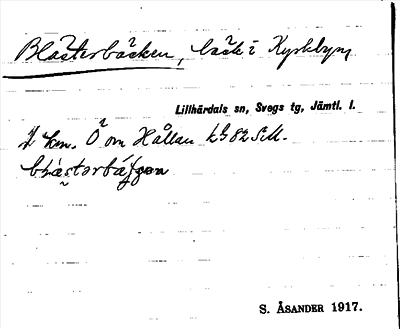 Blästerbäcken, bäck i Kyrkbyn,
Lillhärdals sn, Svegs tg, Jämtl. l.
km. Ö om Hållan 82 S.M.
S. ÅSANDER 1917.